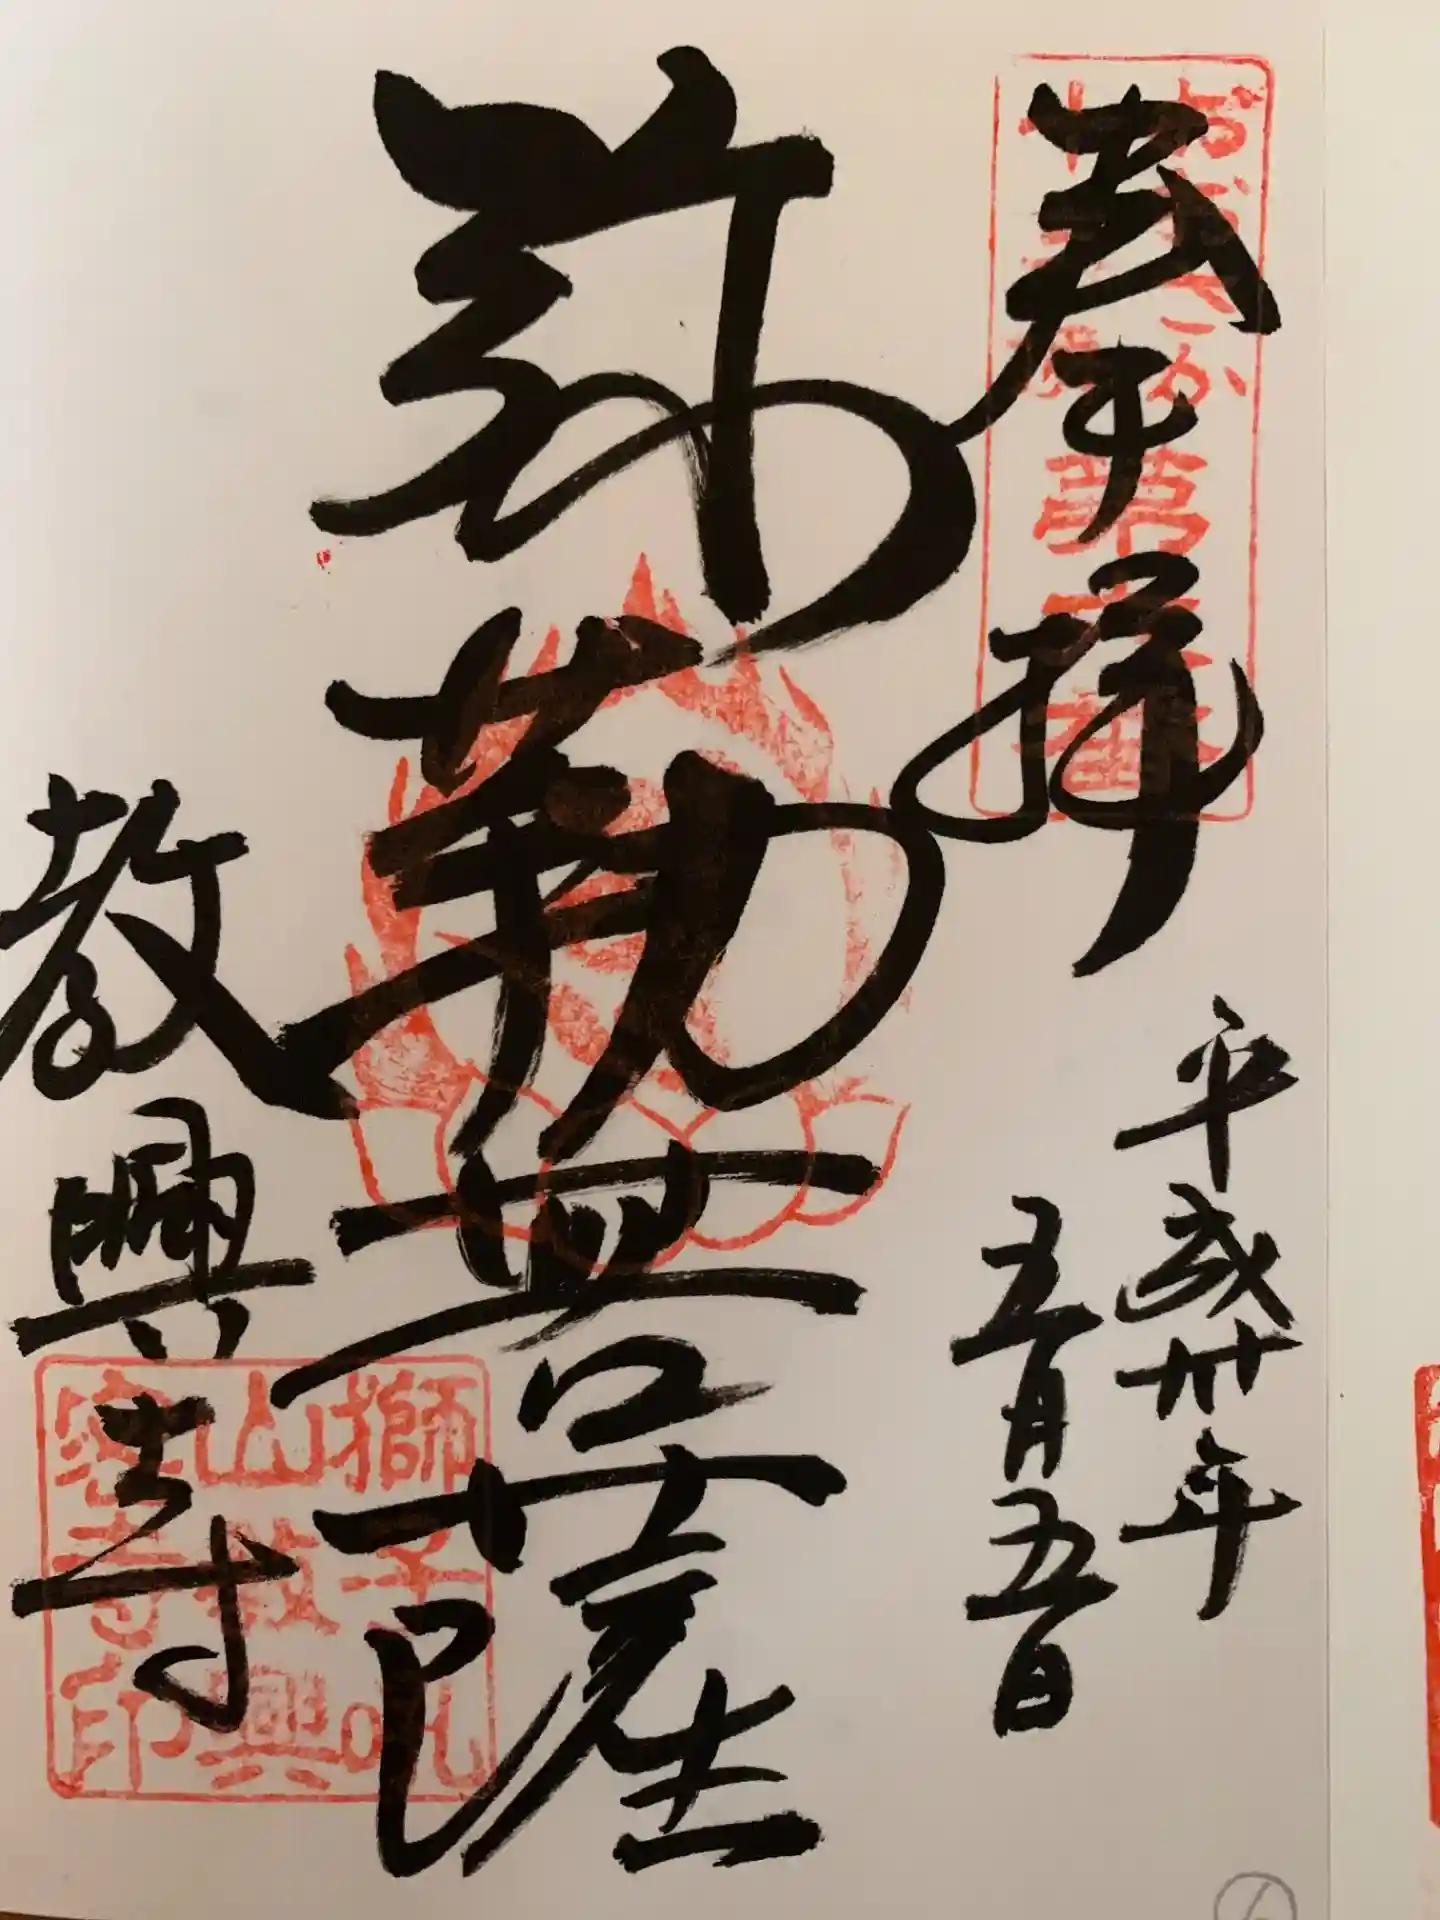 奉拝
平成卅年
五月五日
弥勒菩薩
教興寺
獅子吼
山教興
寺印